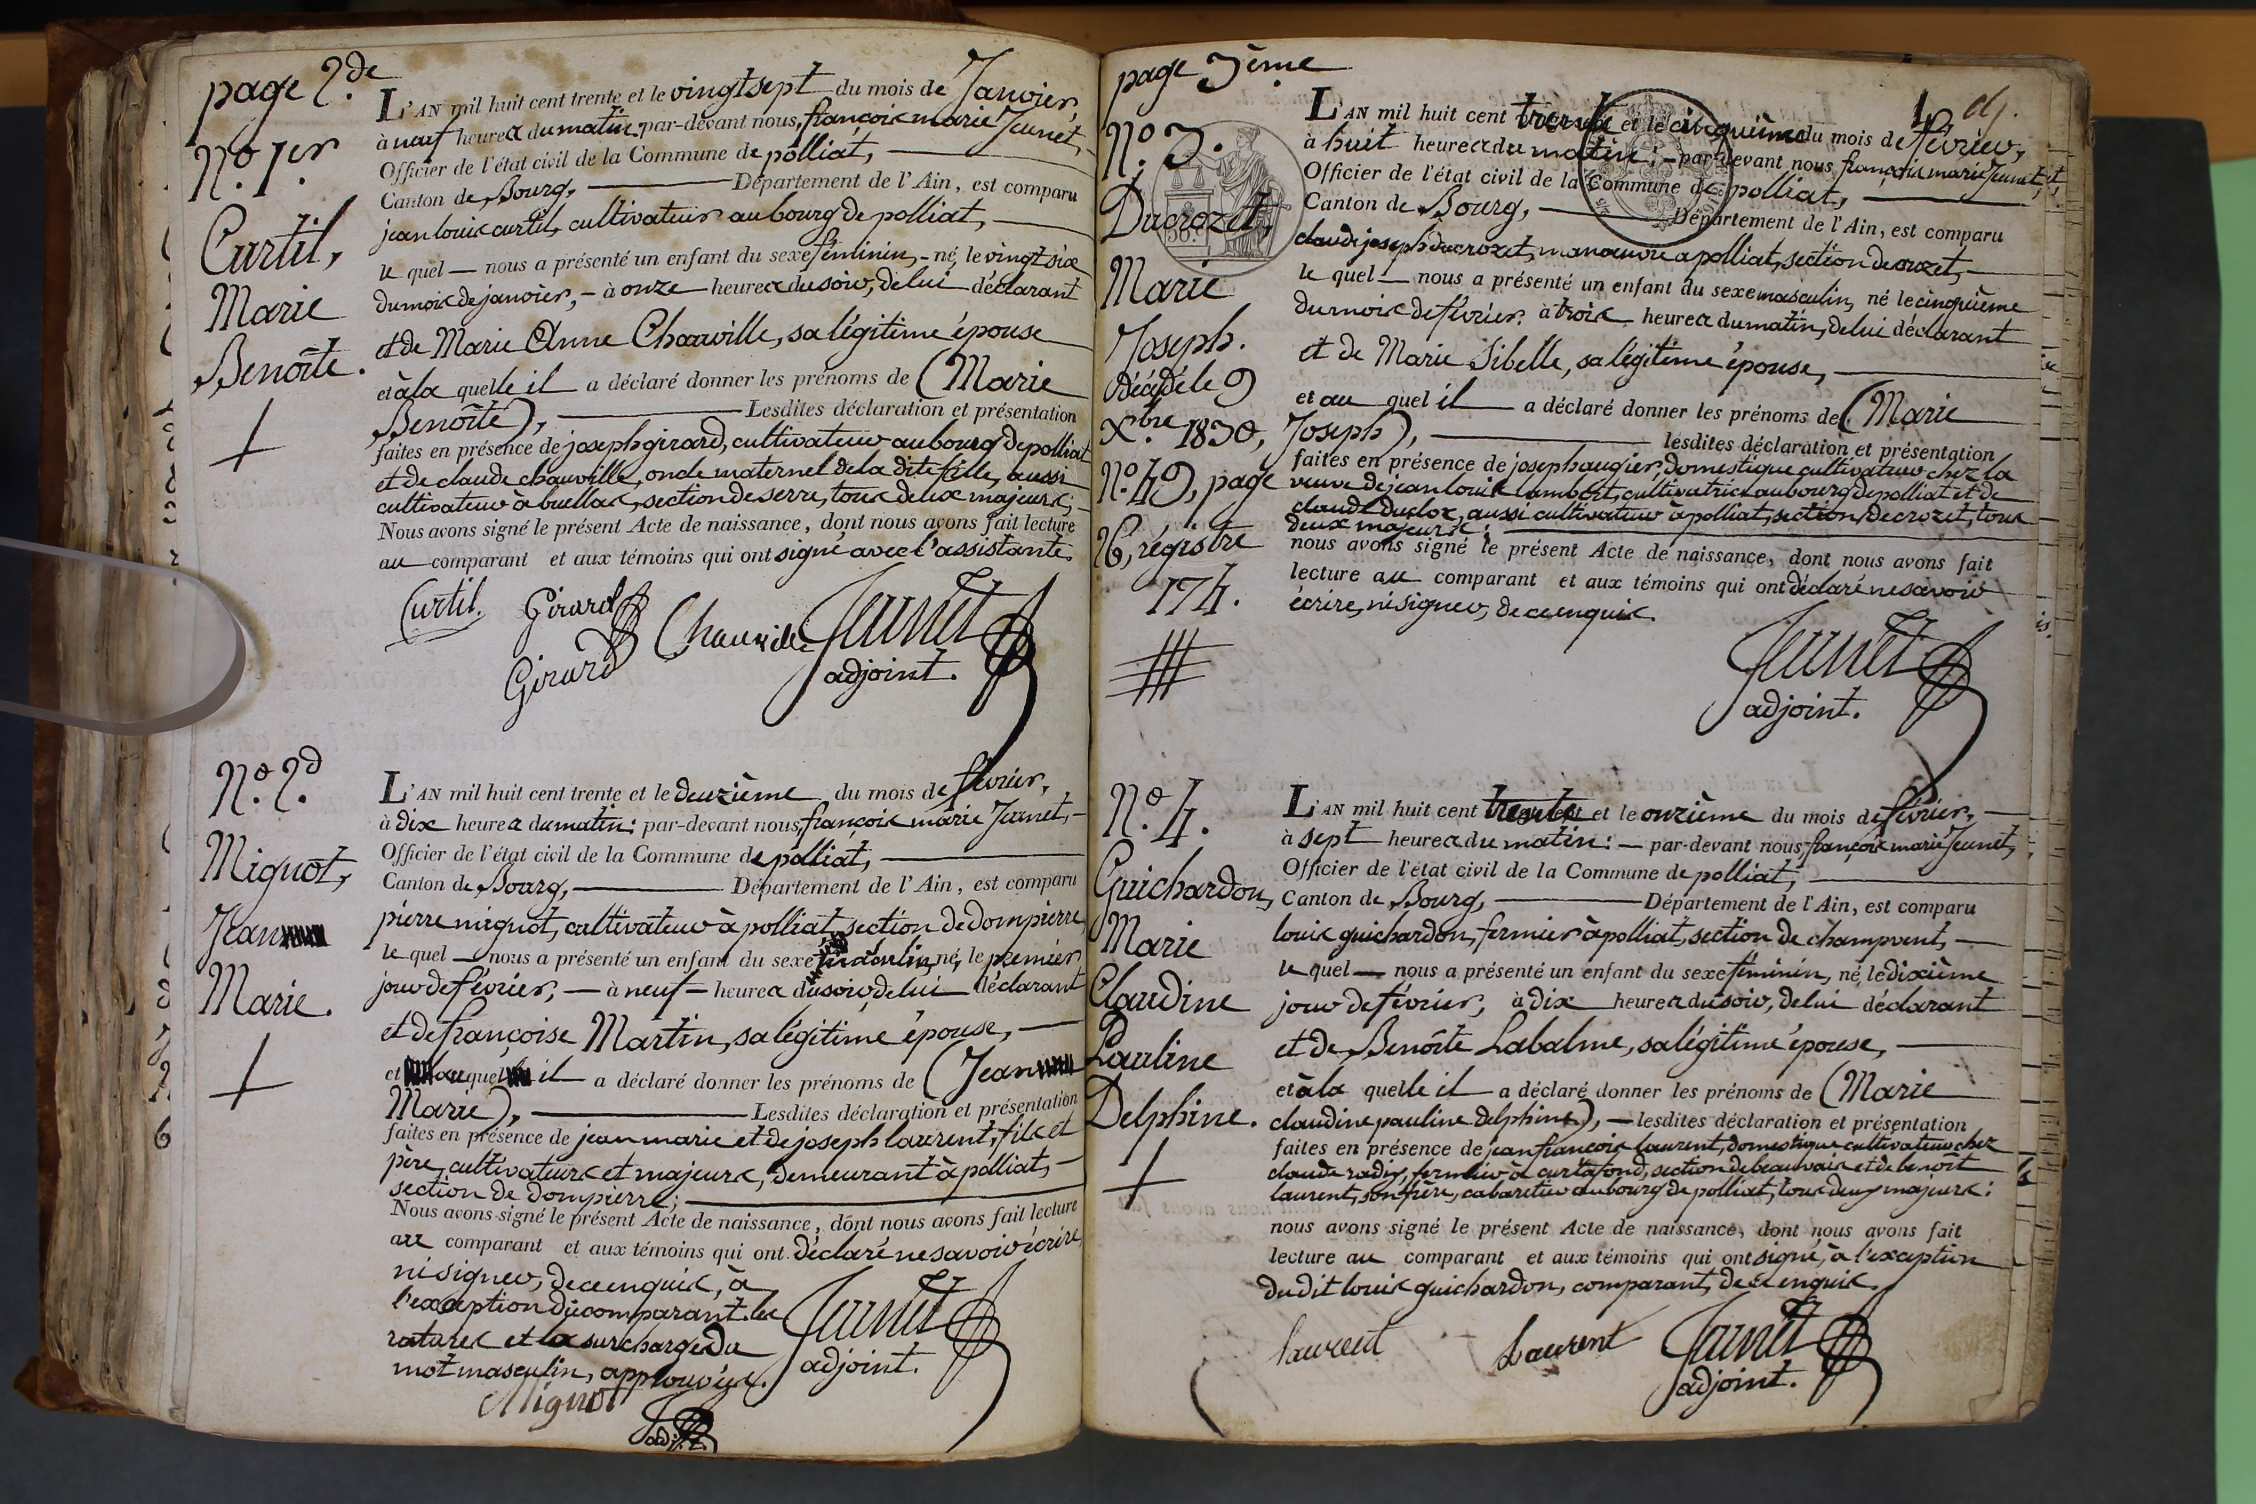 page 2.de
N.o 1.er
Curtil,
Marie
Benoîte.
L'AN mil huit cent trente et le vingt sept du mois de Janvier,
à neuf heures du matin par-devant nous, françois marie Jeunet,
Officier de l'état civil de la Commune de polliat,
Canton de Bourg, Département de l'Ain, est comparu
jean louis curtil, cultivateur au bourg de polliat,
le quel nous a présenté un enfant du sexe féminin, né, le vingt six
du mois de janvier, à onze heures du soir, de lui déclarant
et de Marie Anne Chauville, sa légitime épouse
et à la quelle il a déclaré donner les prénoms de (Marie
Benoîte), Lesdites déclaration et présentation
faites en présence de joseph girard, cultivateur au bourg de polliat
et de claude chauville, oncle maternel de la dite fille, aussi
cultivateur à buellas, section de serre, tous deux majeurs;
Nous avons signé le présent Acte de naissance, dont nous avons fait lecture
au comparant et aux témoins qui ont signé avec l'assistante.
Curtil. Girard Chauville Jeunet
Girard adjoint.
N.o 2.d
Mignot,
Jean
Marie.
L'AN mil huit cent trente et le deuzième du mois de février,
à dix heures du matin: par-devant nous, françois marie Jeunet,
Officier de l'état civil de la Commune de polliat,
Canton de Bourg, Département de l'Ain, est comparu
pierre mignot, cultivateur à polliat, section de dompierre
le quel nous a présenté un enfant du sexe masculin, né, le premier
jour de février, à neuf heures du soir, de lui déclarant
et de françoise Martin, sa légitime épouse,
et au quel il a déclaré donner les prénoms de (Jean
Marie), Lesdites déclaration et présentation
faites en présence de jean marie et de joseph laurent, fils et
père, cultivateurs et majeurs, demeurant à polliat,
section de dompierre;
Nous avons signé le présent Acte de naissance, dont nous avons fait lecture
au comparant et aux témoins qui ont déclaré ne savoir écrire,
ni signer, de ce enquis, à
l'exception du comparant. les
ratures et la surcharge du
mot masculin, approuvées.
Jeunet
adjoint.
Mignot
page 3ème
N.o 3.
Ducrozet,
Marie
Joseph.
Décédé le 9
X.bre 1830,
N.o 49, page
26, registre
174.
L'AN mil huit cent trente et le cinquième du mois de février,
à huit heures du matin; par-devant nous, françois marie Jeunet,
Officier de l'état civil de la Commune de polliat,
Canton de Bourg, Département de l'Ain, est comparu
claude joseph ducrozet, manoeuvre a polliat, section de crozet,
le quel nous a présenté un enfant du sexe masculin, né le cinquième
du mois de février. à trois heures du matin, de lui déclarant
et de Marie Sibelle, sa légitime épouse,
et au quel il a déclaré donner les prénoms de (Marie
Joseph), lesdites déclaration et présentation
faites en présence de joseph augier, domestique cultivateur chez la
veuve de jean louis lambert, cultivatrice au bourg de polliat et de
claude duclos, aussi cultivateur à polliat, section de crozet, tous
deux majeurs;
nous avons signé le présent Acte de naissance, dont nous avons fait
lecture au comparant et aux témoins qui ont déclaré ne savoir
écrire, ni signer, de ce enquis.
Jeunet
adjoint.
N.o 4.
Guichardon,
Marie
Claudine
Pauline
Delphine.
L'AN mil huit cent trente et le onzième du mois de février,
à sept heures du matin: par-devant nous, françois marie Jeunet,
Officier de l'état civil de la Commune de polliat,
Canton de Bourg, Département de l'Ain, est comparu
louis guichardon, fermier à polliat, section de champvent,
le quel nous a présenté un enfant du sexe féminin, né le dixième
jour de février, à dix heures du soir, de lui déclarant
et de Benoîte Labalme, sa légitime épouse,
et à la quelle il a déclaré donner les prénoms de (Marie
claudine pauline delphine), lesdites déclaration et présentation
faites en présence de jean françois laurent, domestique cultivateur chez
claude radix, fermier à curtafond, section de beauvais et de benoît
laurent, son frère, cabaretier au bourg de polliat, tous deux majeurs:
nous avons signé le présent Acte de naissance, dont nous avons fait
lecture au comparant et aux témoins qui ont signé, à l'exception
du dit louis guichardon, comparant, de ce enquis.
laurent Laurent Jeunet
adjoint.